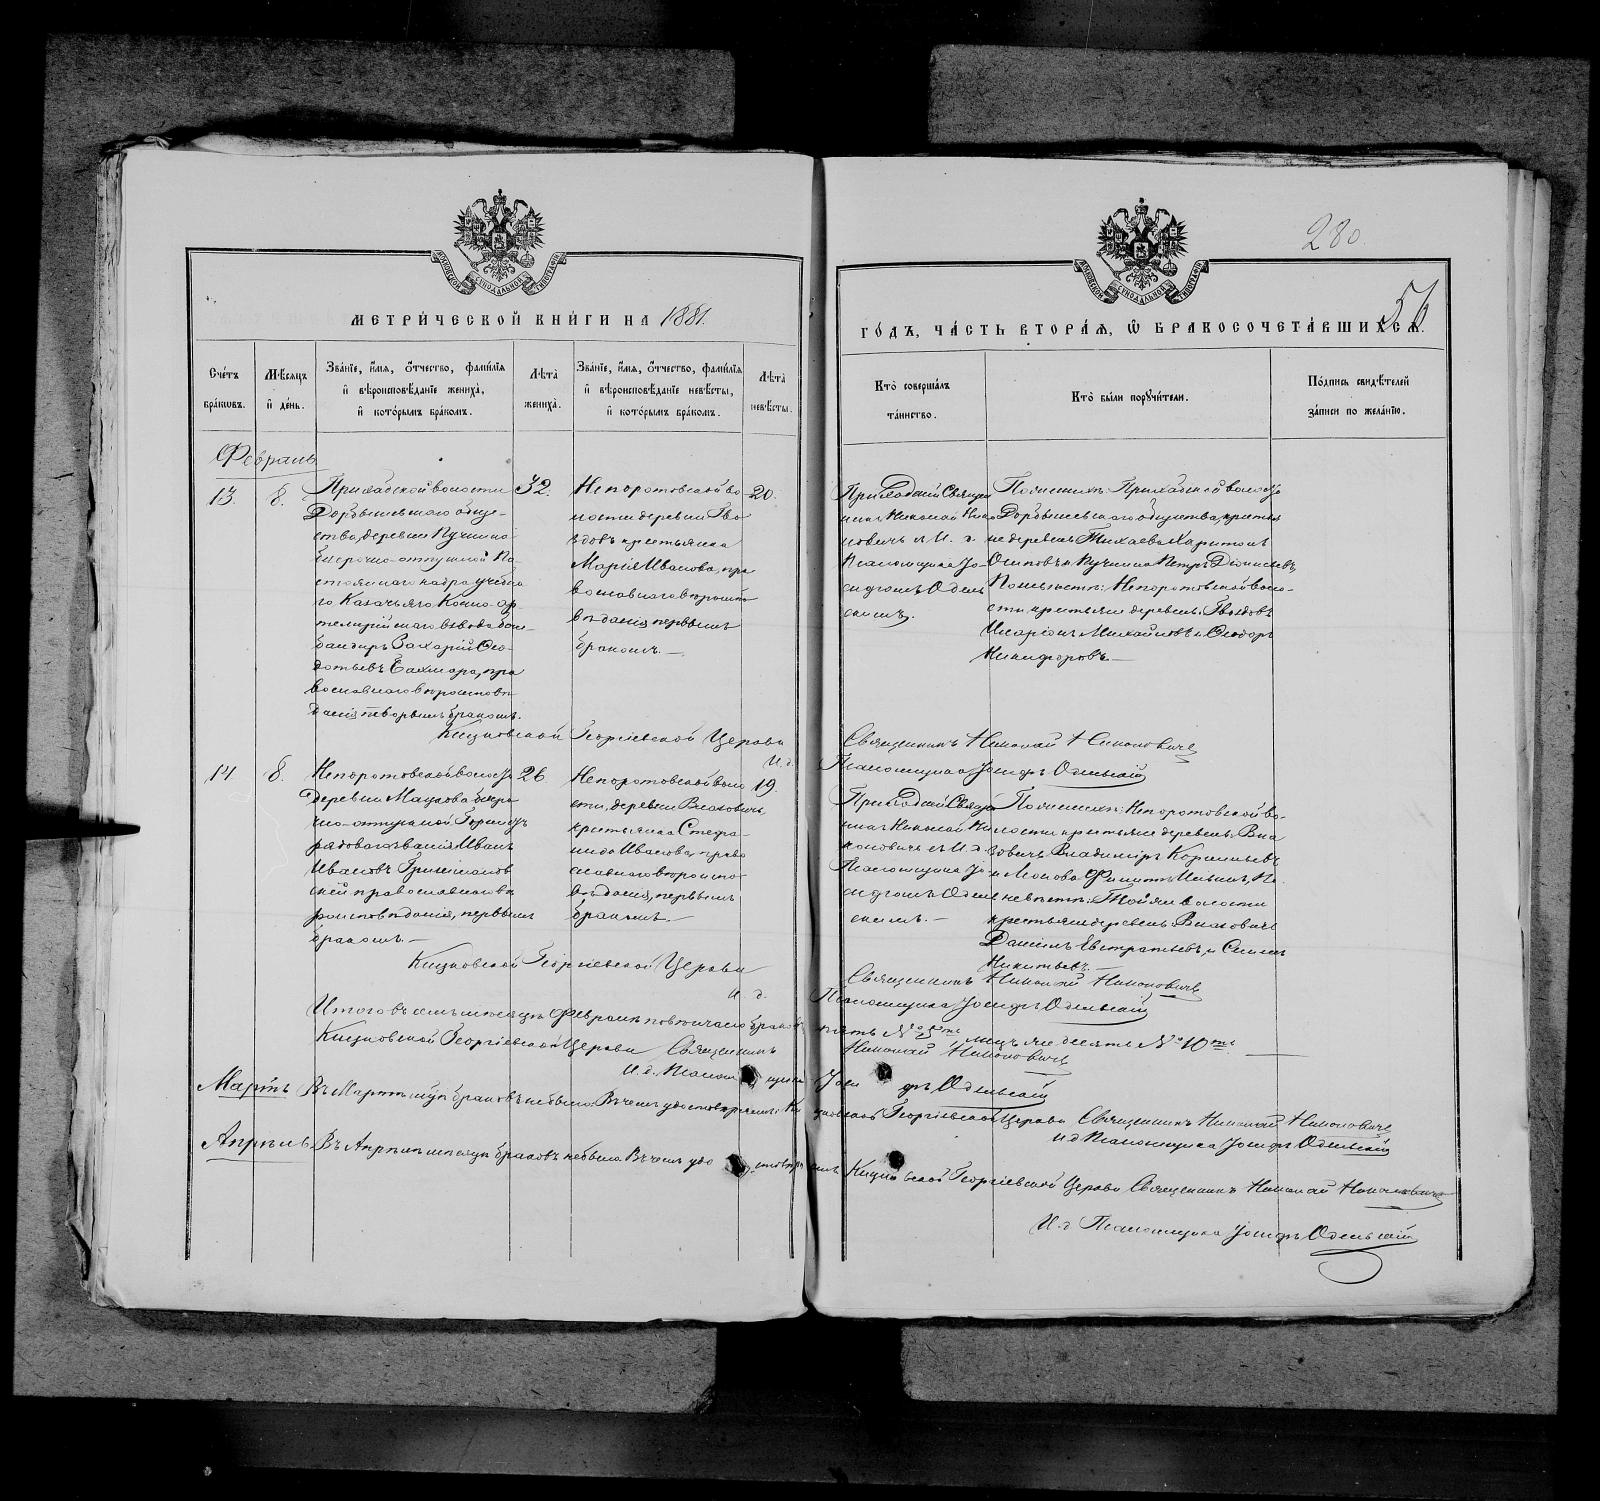 280.
56
МЕТРИ́ЧЕСКОЙ КНИ́ГИ НА 1881.
ГО́ДЪ, ЧА́СТЬ ВТОРА́Я, Ѡ БРАКОСОЧЕТА́ВШИХСЯ.
Сче́тъ бра́кѡвъ.
Мѣ́сяцъ и де́нь.
Зва́нїе, и́мя, ѻ́тчество, фами́лїя и вѣроисповѣ́данїе жениха̀, и кото́рымъ бра́комъ.
Лѣ́та жениха̀.
Зва́нїе, и́мя, ѻ́тчество, фами́лїя и вѣроисповѣ́данїе невѣ́сты, и кото́рымъ бра́комъ.
Лѣ́та невѣ́сты.
Кто̀ соверша́лъ та́инство.
Кто̀ бы́ли порꙋчи́тели.
По́дпись свидѣ́телей за́писи по жела́нїю.
Февраль
13.
8.
Прихабской волости
Дорбышевскаго обще-
ства, деревни Пучнино
безсрочно-отпускной По-
стояннаго кадра учебна-
го Казачьяго Конно-ар-
тилерійскаго взвода бом-
бандиръ Захарій Ѳео-
дотьевъ, пра
вославнаго вѣроисповѣ-
данія вторымъ бракомъ.
32.
Непоротовской во
лости деревни Гво
здовъ крестьянка
Марія Иванова, пра
вославнаго вѣроиспо
вѣданія, первымъ
бракомъ. —
20.
Приходскій Священ
никъ Николай Нико
новичъ и И. д.
Псаломщика Іо-
сифомъ Одель
скимъ.
По женихѣ: Прихабской волости
Дорбышевскаго общества, крестья
не деревень Тихаева Харитонъ
Осиповъ и Пучнина Петръ Діонисіевъ,
По невѣстѣ: Непоротовской воло-
сти, крестьяне деревень: Гвоздовъ
Иларіонъ Михайловъ и Ѳеодоръ
Никифоровъ. —
Кицковской Георгіевской Церкви
Священникъ Николай Никоновичъ
И. д. Псаломщика Іосифъ Одельскій
14
8.
Непоротовской волости
деревни безсро
чно-отпускной
рядоваго званія Иванъ
Ивановъ
православнаго вѣ
роисповѣданія, первымъ
бракомъ. —
26
Непоротовской воло
сти, деревни Власовичъ,
крестьянка Стефа-
нида Иванова, право
славнаго вѣроиспо-
вѣданія, первымъ
бракомъ. —
19.
Приходскій Священ
никъ Николай Ни
коновичъ и И. д.
Псаломщика Іо-
сифомъ Одель
скимъ. —
По женихѣ: Непоротовской во-
лости крестьяне деревень: Вла
совичъ Владиміръ Корнильевъ
и Филиппъ Ильинъ, По
невѣстѣ: Той же волости
крестьяне деревень: Власовичъ
Даніилъ Евстратьевъ и Симеонъ
Никитьевъ. —
Кицковской Георгіевской Церкви
Священникъ Николай Никоновичъ
И. д. Псаломщика Іосифъ Одельскій
Итого въ семъ мѣсяцѣ Февралѣ повѣнчано браковъ пять № 5ть лицъ же десять № 10ть —
Кицковской Георгіевской Церкви Священникъ Николай Никоновичъ
И. д. Псаломщика Іосифъ Одельскій
Мартъ Въ Мартѣ м-цѣ браковъ небыло. Въ чемъ удостовѣряемъ: Кицковской Георгіевской Церкви Священникъ Николай Никоновичъ
И. д. Псаломщика Іосифъ Одельскій
Апрѣль. Въ Апрѣлѣ мѣсяцѣ браковъ небыло. Въ чемъ удостовѣряемъ Кицковской Георгіевской Церкви Священникъ Николай Никоновичъ
И. д. Псаломщика Іосифъ Одельскій